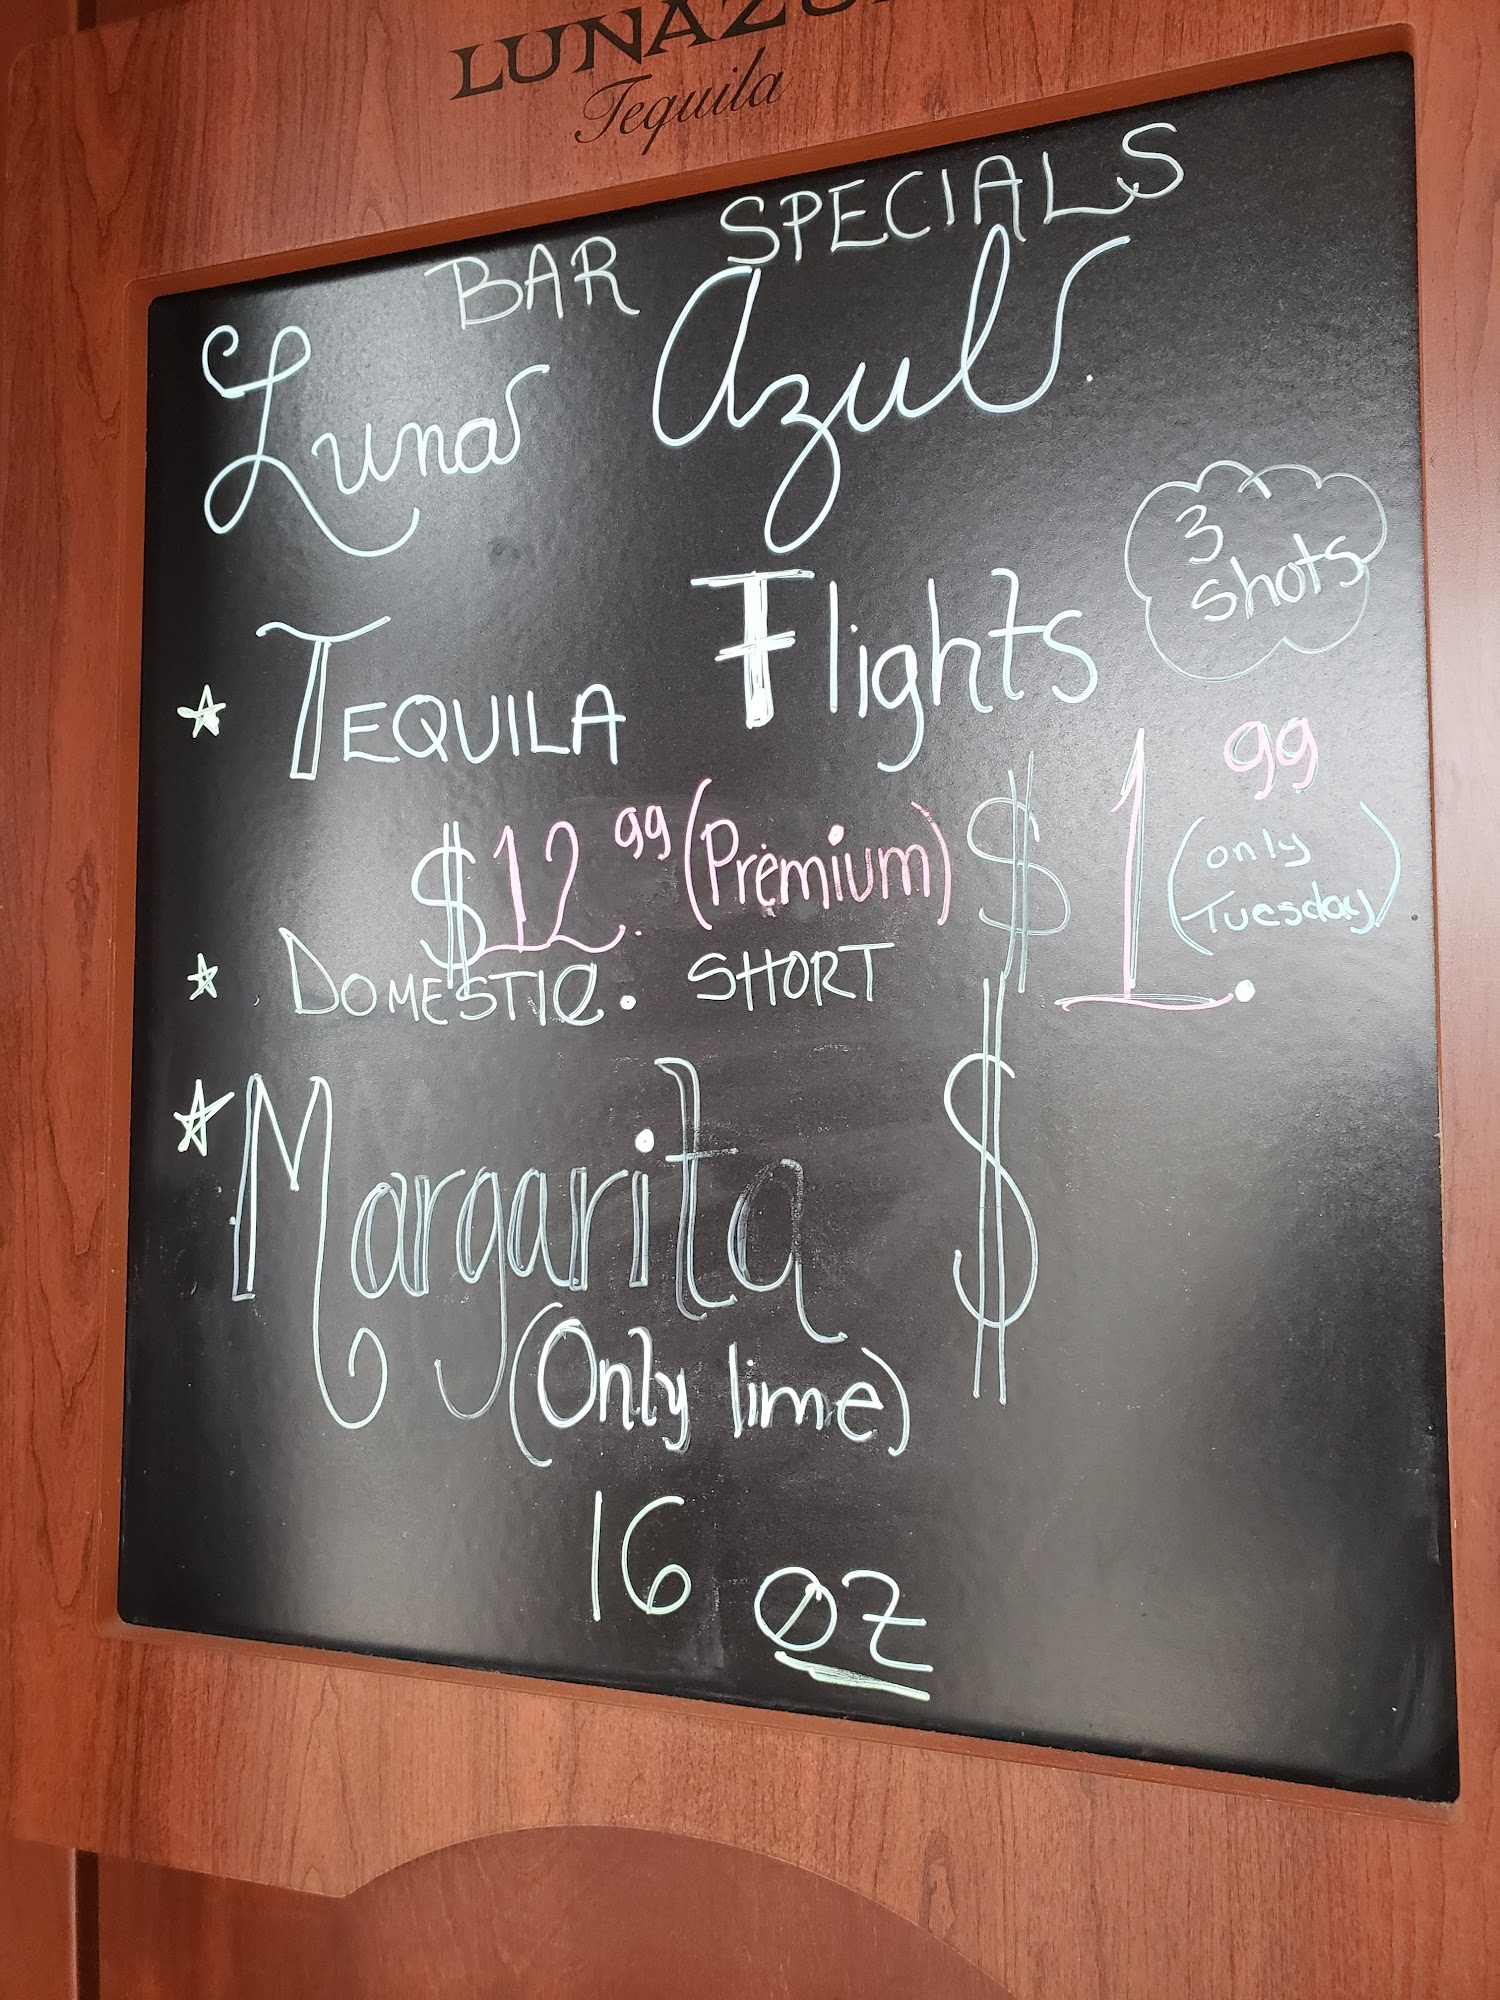 LUNAZU
Tequila
BAR SPECIALS
Luna Azul
3
shots
★ TEQUILA Flights
$12.99 (Premium)
★ DOMESTIC. SHORT $1.99
(only
Tuesday)
★ Margarita $
(Only lime)
16 OZ